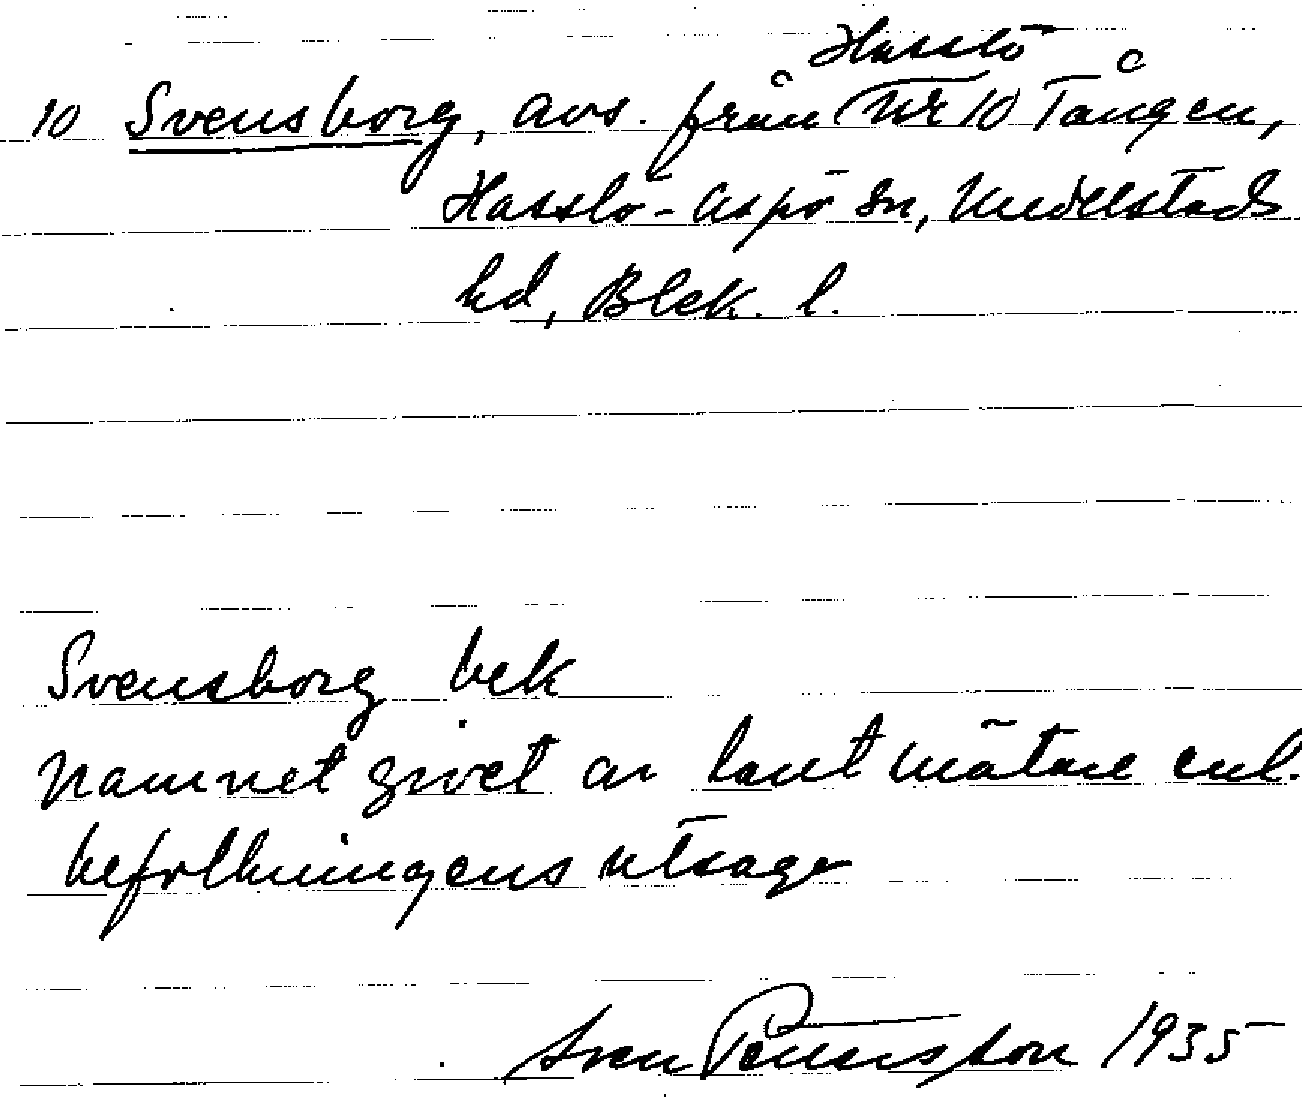 Hasslö
10 Svensborg, avs. från Nr 10 Tången,
Hasslö-Aspö sn, Medelstads
hd, Blek. l.
Svensborg bek
Namnet givet av lantmätare enl.
befolkningens utsago
Sven Pettersson 1935